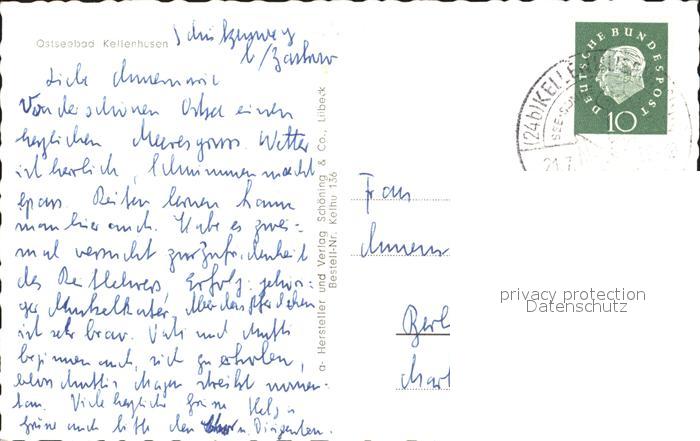 Ostseebad Kellenhusen
Schützenweg
b/Zastrow
Liebe Annemarie
Von der schönen Ostsee einen
herzlichen Meeresgruss. Wetter
ist herrlich, Schwimmen macht
Spass. Reiten lernen kann
man hier auch. Habe es zwei-
mal versucht zur Zufriedenheit
des Reitlehrers, Erfolg: gehöri-
ger Muskelkater. Aber das Pferdchen
ist sehr brav. Vati und Mutti
beginnen auch, sich zu erholen,
bloss Muttis Magen streikt momen-
tan. Viele herzliche Grüsse
Grüsse auch bitte den Chor u. Dirigenten.
a- Hersteller und Verlag Schöning & Co., Lübeck
Bestell-Nr. Kelhu 136
DEUTSCHE BUNDESPOST
10
(24b) KELLENHUSEN
21.7.
Frau
Annem
Berl
privacy protection
Datenschutz